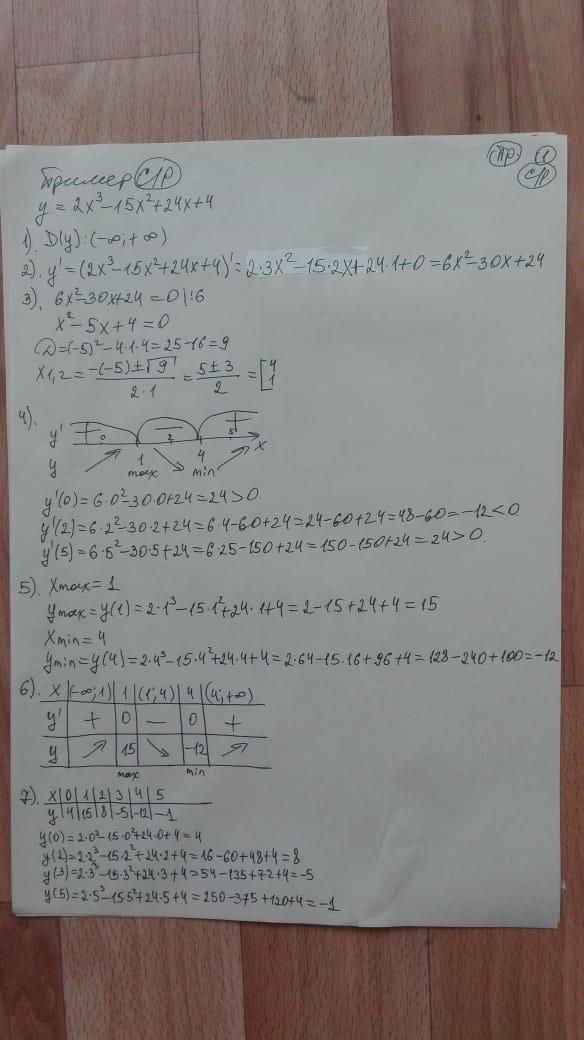 Пр. 1
Пример С/Р С/Р
y = 2x³-15x²+24x+4
1). D(y):(-∞;+∞)
2). y'=(2x³-15x²+24x+4)'=2·3x²-15·2x+24·1+0=6x²-30x+24
3). 6x²-30x+24=0|:6
x²-5x+4=0
D=(-5)²-4·1·4=25-16=9
x1,2=(-(-5)±√9)/(2·1)=(5±3)/2=[4 1
4).
y' + 0 - 2 + 5
y 1 4 x
max min
y'(0)=6·0²-30·0+24=24>0.
y'(2)=6·2²-30·2+24=6·4-60+24=24-60+24=48-60=-12<0
y'(5)=6·5²-30·5+24=6·25-150+24=150-150+24=24>0.
5). Xmax=1
ymax=y(1)=2·1³-15·1²+24·1+4=2-15+24+4=15
Xmin=4
ymin=y(4)=2·4³-15·4²+24·4+4=2·64-15·16+96+4=128-240+100=-12
6). X |(-∞;1)| 1 |(1;4)| 4 |(4;+∞)
y' | + | 0 | - | 0 | +
y | ↗ | 15 | ↘ | -12 | ↗
max min
7). X|0|1|2|3|4|5
y|4|15|8|-5|-12|-1
y(0)=2·0³-15·0²+24·0+4=4
y(2)=2·2³-15·2²+24·2+4=16-60+48+4=8
y(3)=2·3³-15·3²+24·3+4=54-135+72+4=-5
y(5)=2·5³-15·5²+24·5+4=250-375+120+4=-1